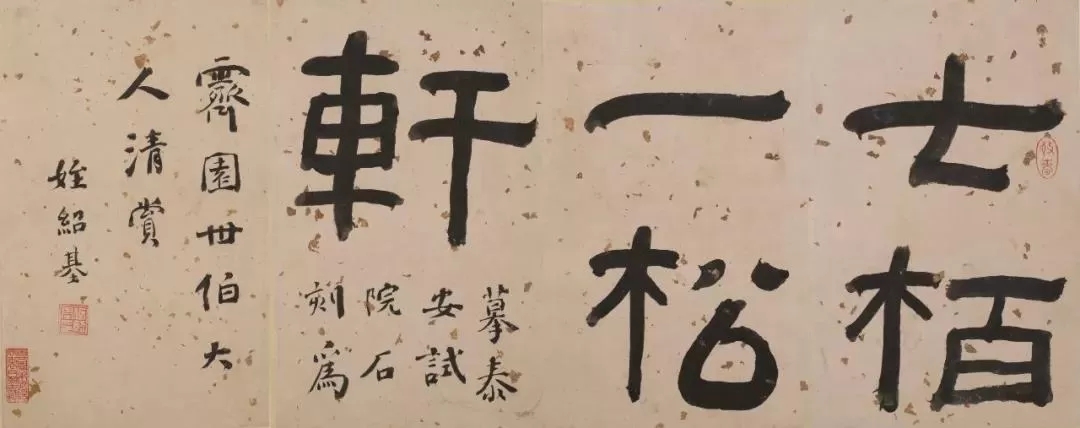 七栢
一松
軒
摹泰
安試
院石
刻爲
霽園世伯大
人清賞
姪紹基